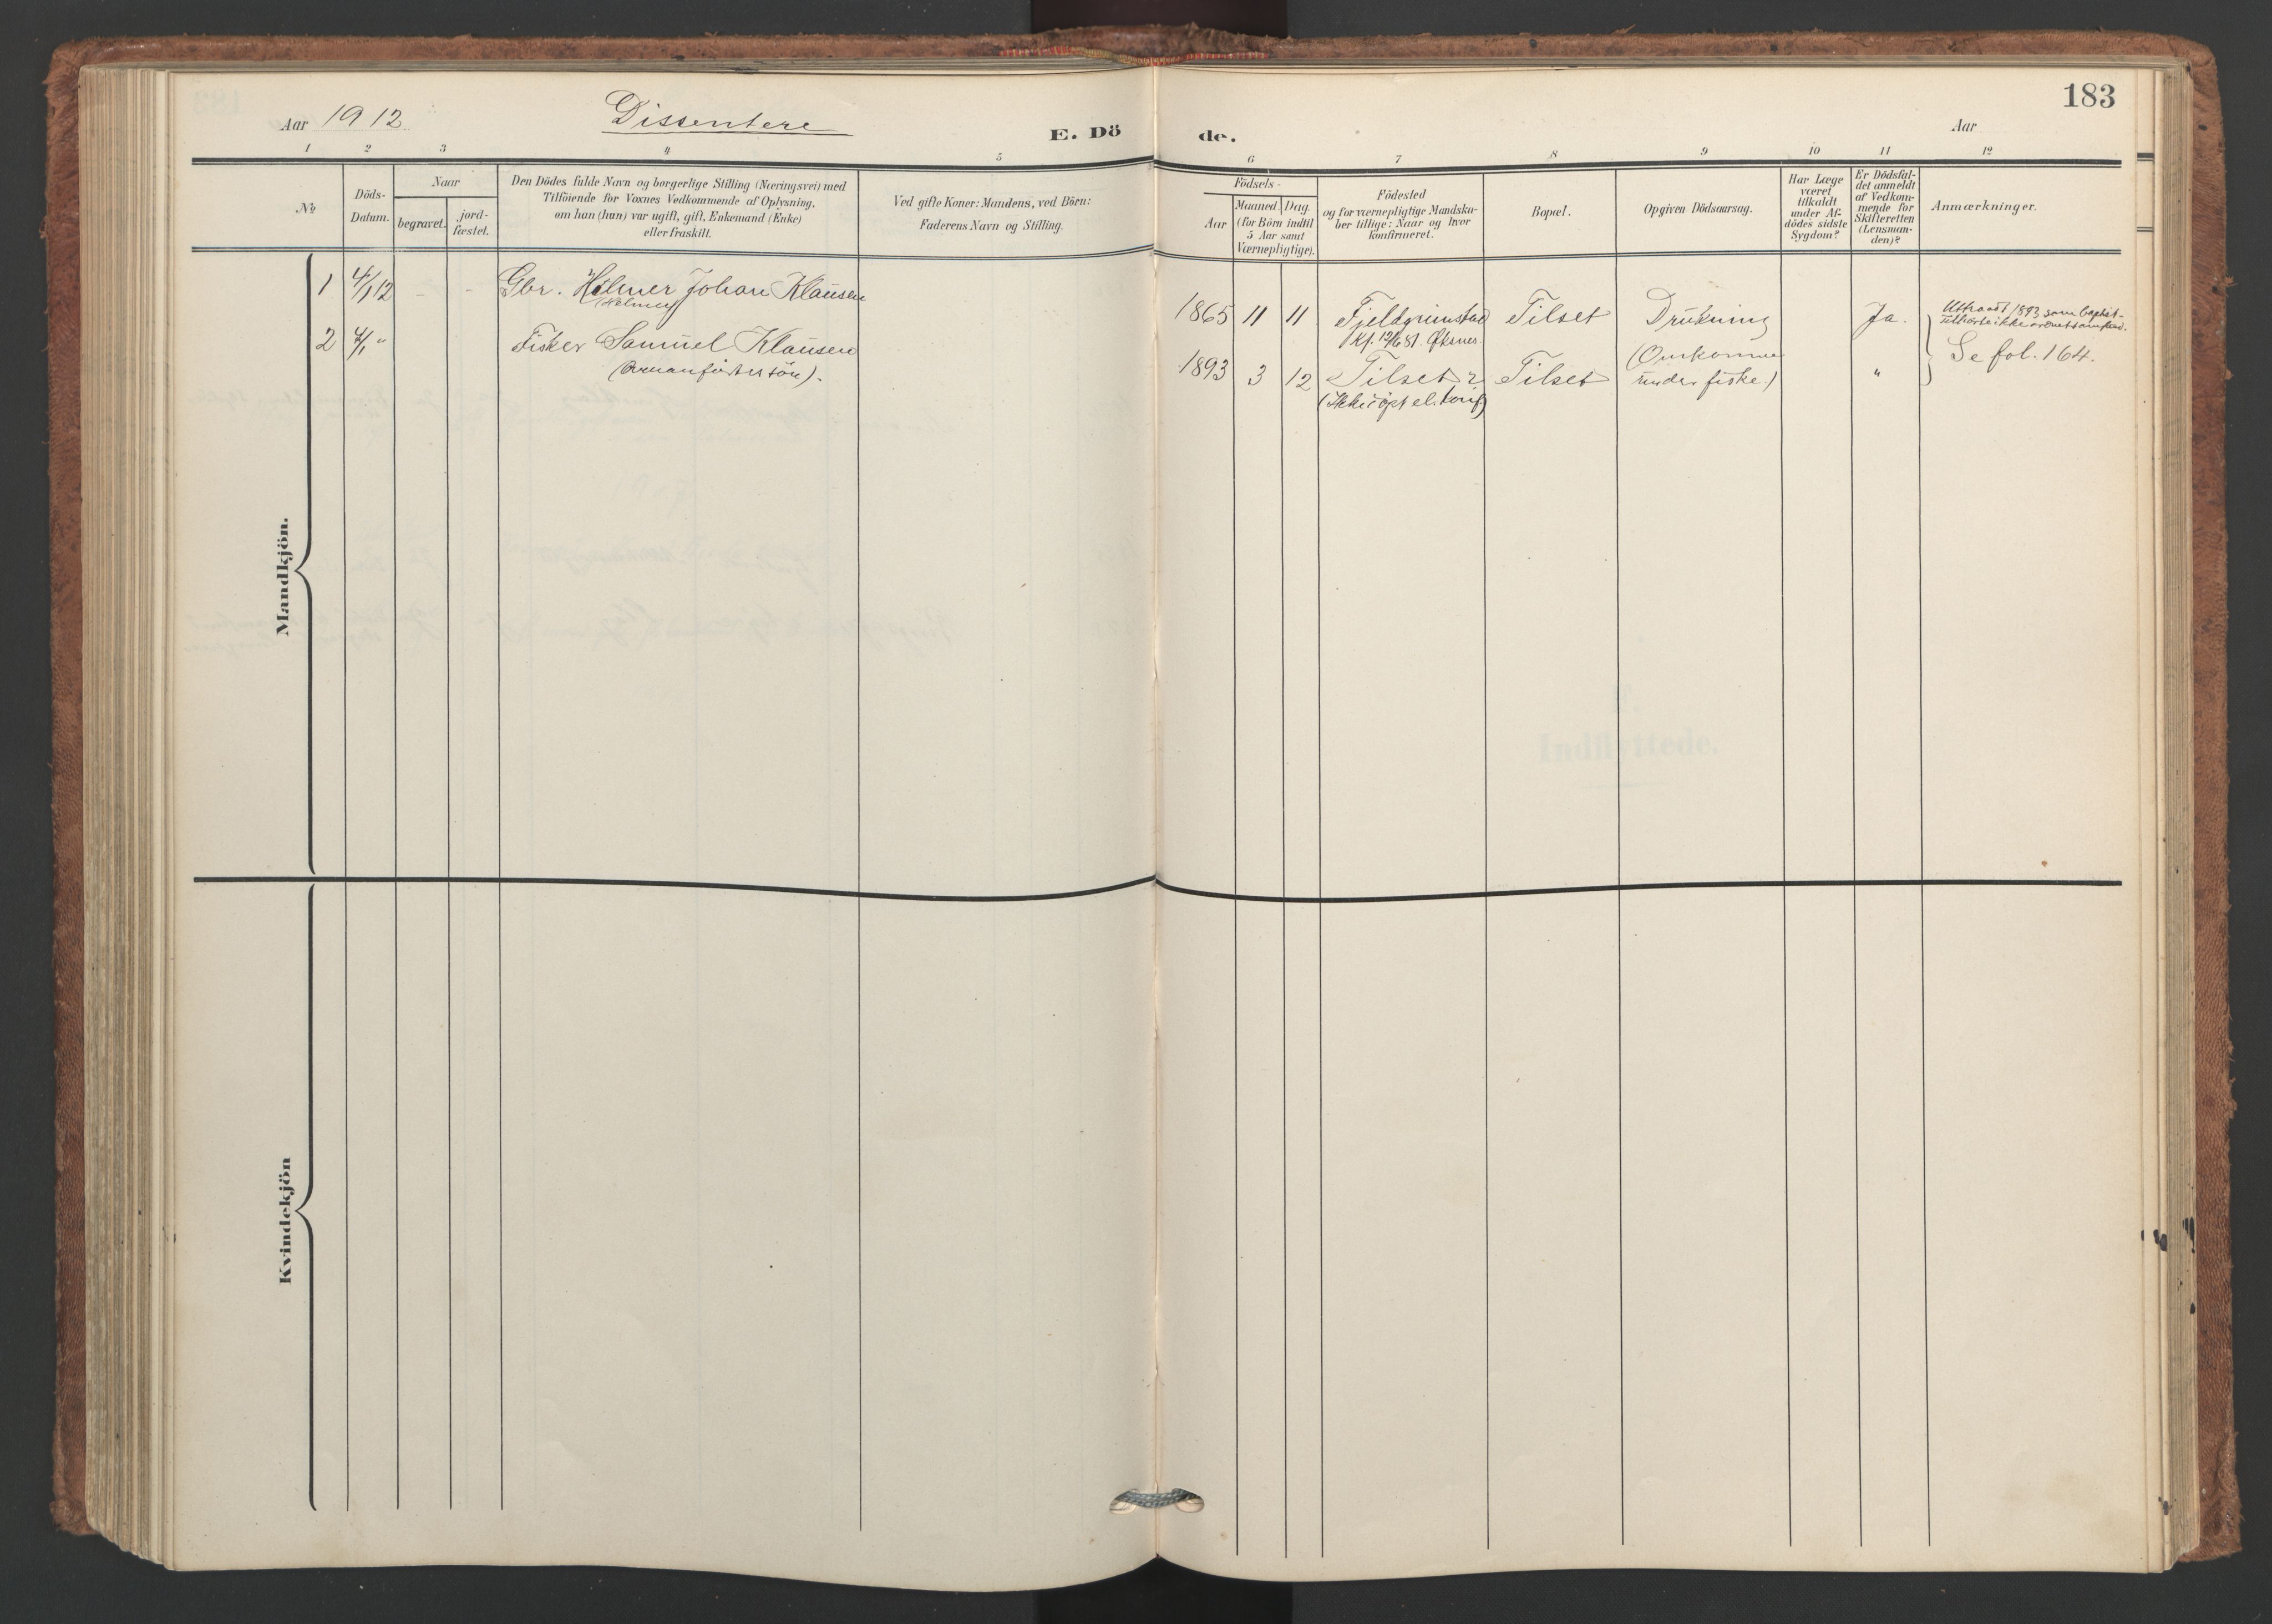 183
Aar 1912 Dissentere E. Dö de. Aar
1 2 3 4 5 6 7 8 9 10 11 12
No
Döds-
Datum.
Naar
begravet.
jord-
fæstet.
Den Dödes fulde Navn og borgerlige Stilling (Næringsvei) med
Tilföiende for Voxnes Vedkommende af Oplysning,
om han (hun) var ugift, gift, Enkemand (Enke)
eller fraskilt.
Ved gifte Koner: Mandens, ved Börn:
Faderens Navn og Stilling.
Födsels-
Aar
Maaned. Dag.
(for Börn indtil
5 Aar samt
Værnepligtige).
Födested
og for værnepligtige Mandska-
ber tillige: Naar og hvor
konfirmeret.
Bopæl.
Opgiven Dödsaarsag.
Har Læge
været
tilkaldt
under Af-
dödes sidste
Sygdom?
Er Dödsfal-
det anmeldt
af Vedkom-
mende for
Skifteretten
(Lensman-
den)?
Anmærkninger.
Mandkjön.
1 4/1 12 - - Gbr. Hilmer Johan Klausen
(Helmer)
1865 11 11 Fjeldgrimstad Tilset Drukning Ja.
Kf. 12/6 81. Øksnes
Uttraadt 1893 som baptist-
2 4/1 " Fisker Samuel Klausen
1893 3 12 Tilset? Tilset (Omkomne
under fiske.) "
(Ikke döpt el. konf.)
Se fol. 164.
Kvindekjön
Indflyttede.